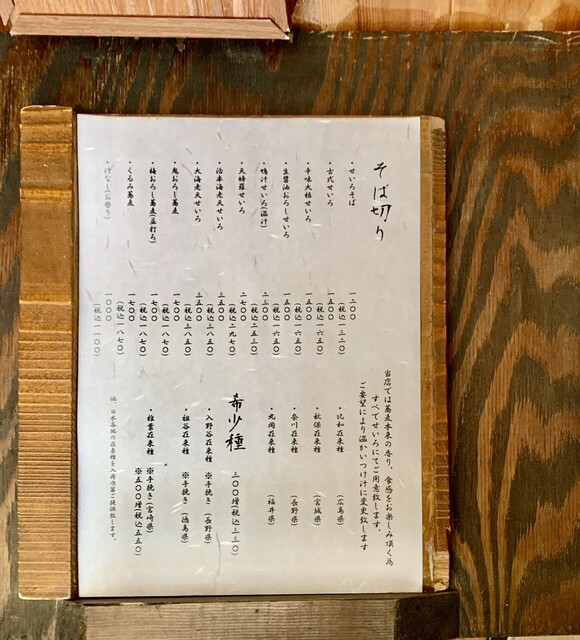 そば切り
・せいろそば 一二〇〇
(税込一三二〇)
・古式せいろ 一五〇〇
(税込一六五〇)
・辛味大根せいろ 一五〇〇
(税込一六五〇)
・生醤油おろしせいろ 一五〇〇
(税込一六五〇)
・鴨汁せいろ(温汁) 二三〇〇
(税込二五三〇)
・天婦羅せいろ 二七〇〇
(税込二九七〇)
・活車海老天せいろ 三五〇〇
(税込三八五〇)
・大海老天せいろ 三五〇〇
(税込三八五〇)
・鬼おろし蕎麦 一七〇〇
(税込一八七〇)
・梅おろし蕎麦 一七〇〇
(税込一八七〇)
・くるみ蕎麦 一七〇〇
(税込一八七〇)
・汁なし(お替り) 一〇〇〇
(税込一一〇〇)
当店では蕎麦本来の香り、食感をお楽しみ頂く為
すべてせいろにてご用意致します。
ご要望により温かいつけ汁に変更致します
・比和在来種 (広島県)
・秋保在来種 (宮城県)
・奈川在来種 (長野県)
・丸岡在来種 (福井県)
希少種 三〇〇増(税込三三〇)
・入野谷在来種 ※手挽き(長野県)
・祖谷在来種 ※手挽き(徳島県)
・椎葉在来種 ※手挽き(宮崎県)
※五〇〇増(税込五五〇)
他、日本各地の在来種を入荷次第ご提供致します。